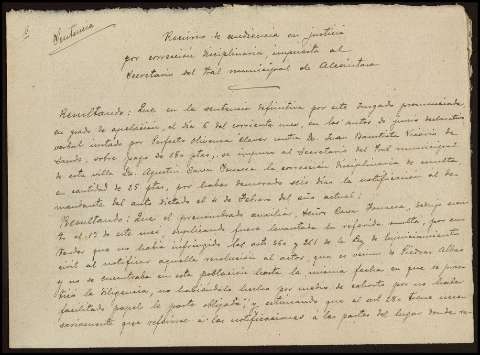 Sentencia
Recurso de audiencia en justicia
por corrección disciplinaria, impuesta al
Secretario del Tral municipal de Alcántara
Resultando: Que en la sentencia definitiva por este Juzgado pronunciada,
en grado de apelación, el día 6 del corriente mes, en los autos de juicio declarativo
verbal instado por Perfecto Olivenza Claver contra Dn. Juan Bautista Vicario de
sobre pago de 180 ptas., se impuso al Secretario del Tral municipal
de esta villa Dn. Agustín la corrección disciplinaria de multa
en cantidad de 25 ptas, por haber demorado seis días la notificación al de-
mandante del auto dictado el 4 de Febrero del año actual:
Resultando: Que el prenombrado auxiliar, Señor dedujo con
el 12 de este mes, suplicando fuera levantada su referida multa; por en-
tender que no había infringido los arts 260 y 261 de la Ley de Enjuiciamiento
civil al notificar aquella resolución al actor, que es vecino de Piedras Albas
y no se encontraba en esta población hasta la misma fecha en que se prac-
ticó la diligencia, no habiéndolo hecho por medio de exhorto por no haber
facilitado papel la parte obligada; y estimando que el art 260 tiene nece-
sariamente que referirse a las notificaciones a las partes del lugar donde re-